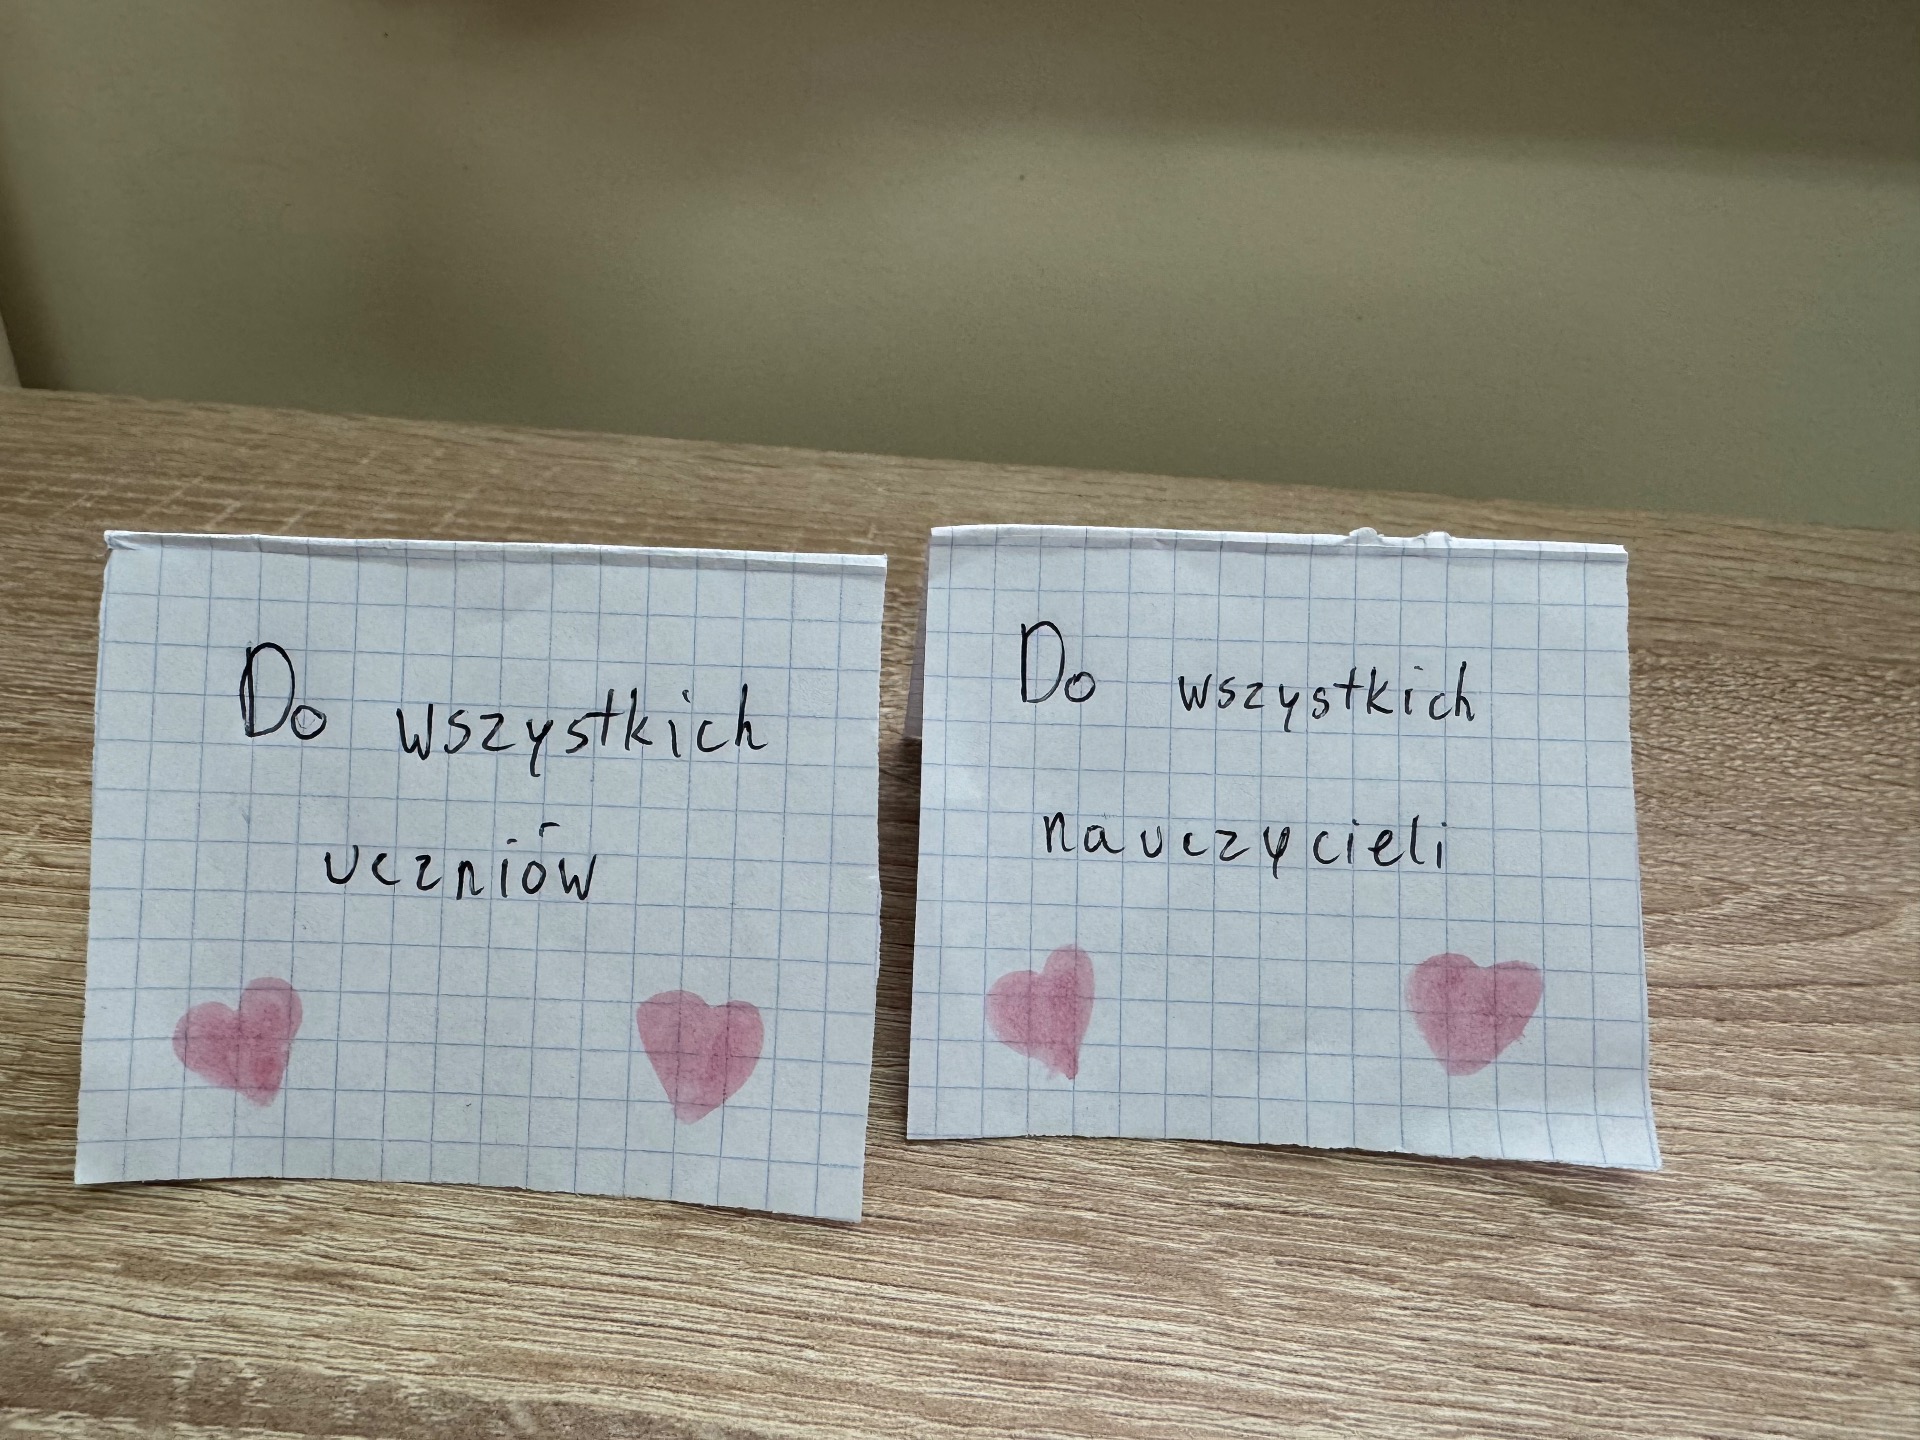 Do wszystkich
uczniów
Do wszystkich
nauczycieli